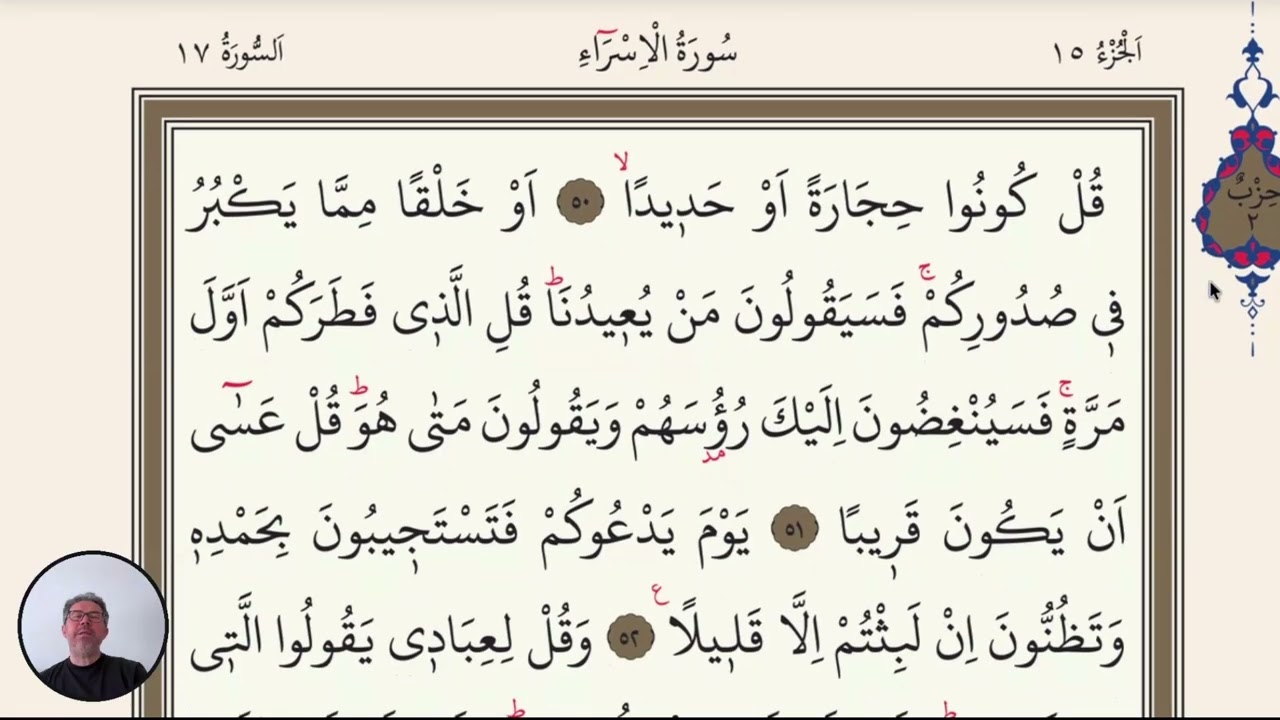 اَلْجُزْءُ ١٥ سُورَةُ الْاِسْرَٓاءِ اَلسُّورَةُ ١٧
حِزْبٌ
٢
قُلْ كُونُوا حِجَارَةً اَوْ حَدٖيدًاۙ ٥٠ اَوْ خَلْقًا مِمَّا يَكْبُرُ
فٖى صُدُورِكُمْۚ فَسَيَقُولُونَ مَنْ يُعٖيدُنَاۜ قُلِ الَّذٖى فَطَرَكُمْ اَوَّلَ
مَرَّةٍۚ فَسَيُنْغِضُونَ اِلَيْكَ رُؤُ۫سَهُمْ وَيَقُولُونَ مَتٰى هُوَۜ قُلْ عَسٰٓى
اَنْ يَكُونَ قَرٖيبًا ٥١ يَوْمَ يَدْعُوكُمْ فَتَسْتَجٖيبُونَ بِحَمْدِهٖ
وَتَظُنُّونَ اِنْ لَبِثْتُمْ اِلَّا قَلٖيلًاࣖ ٥٢ وَقُلْ لِعِبَادٖى يَقُولُوا الَّتٖى